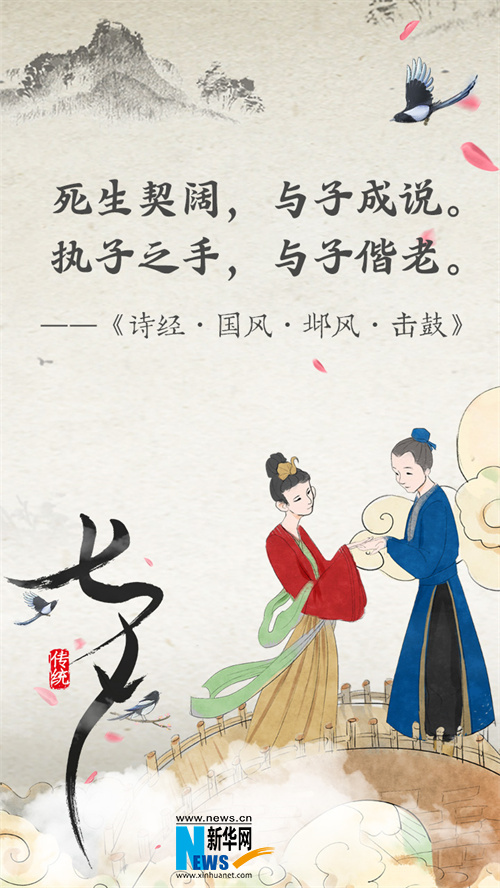 死生契阔，与子成说。
执子之手，与子偕老。
——《诗经·国风·邶风·击鼓》
七夕
传统
www.news.cn
新华网
NEWS
www.xinhuanet.com